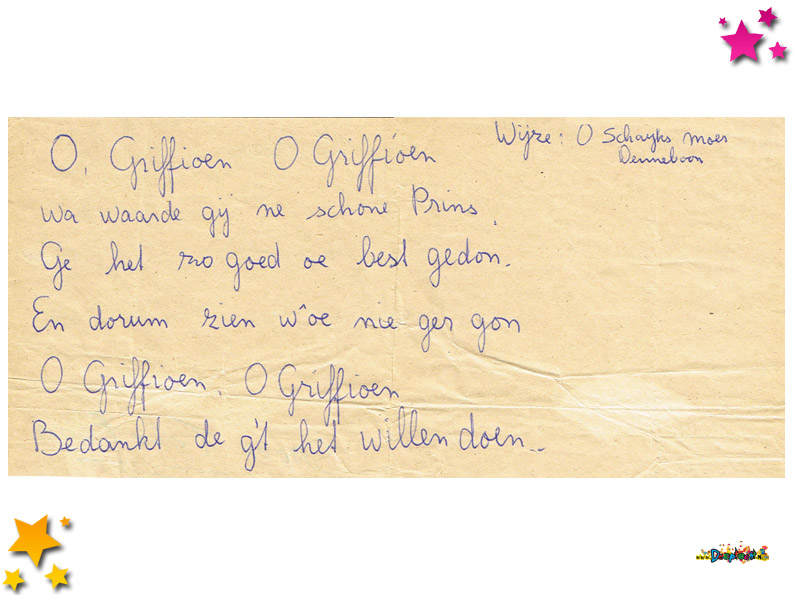 Wijze: O Schayks moes
Denneboon
O, Griffioen O Griffioen
wa waarde gij ne schone Prins,
Ge het zo goed oe best gedon.
En dorum zien w'oe nie ger gon
O Griffioen, O Griffioen
Bedankt de g't het willen doen..